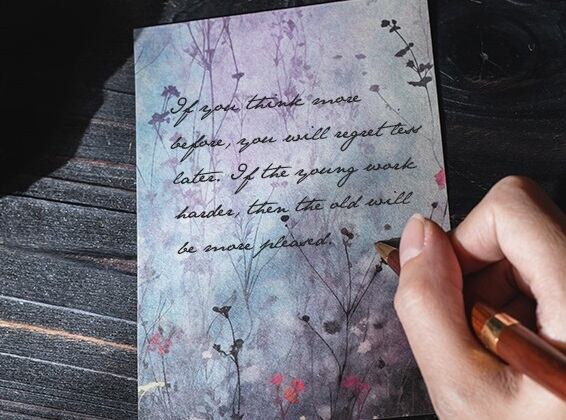 If you think more
before, you will regret less
later. If the young work
harder, then the old will
be more pleased.